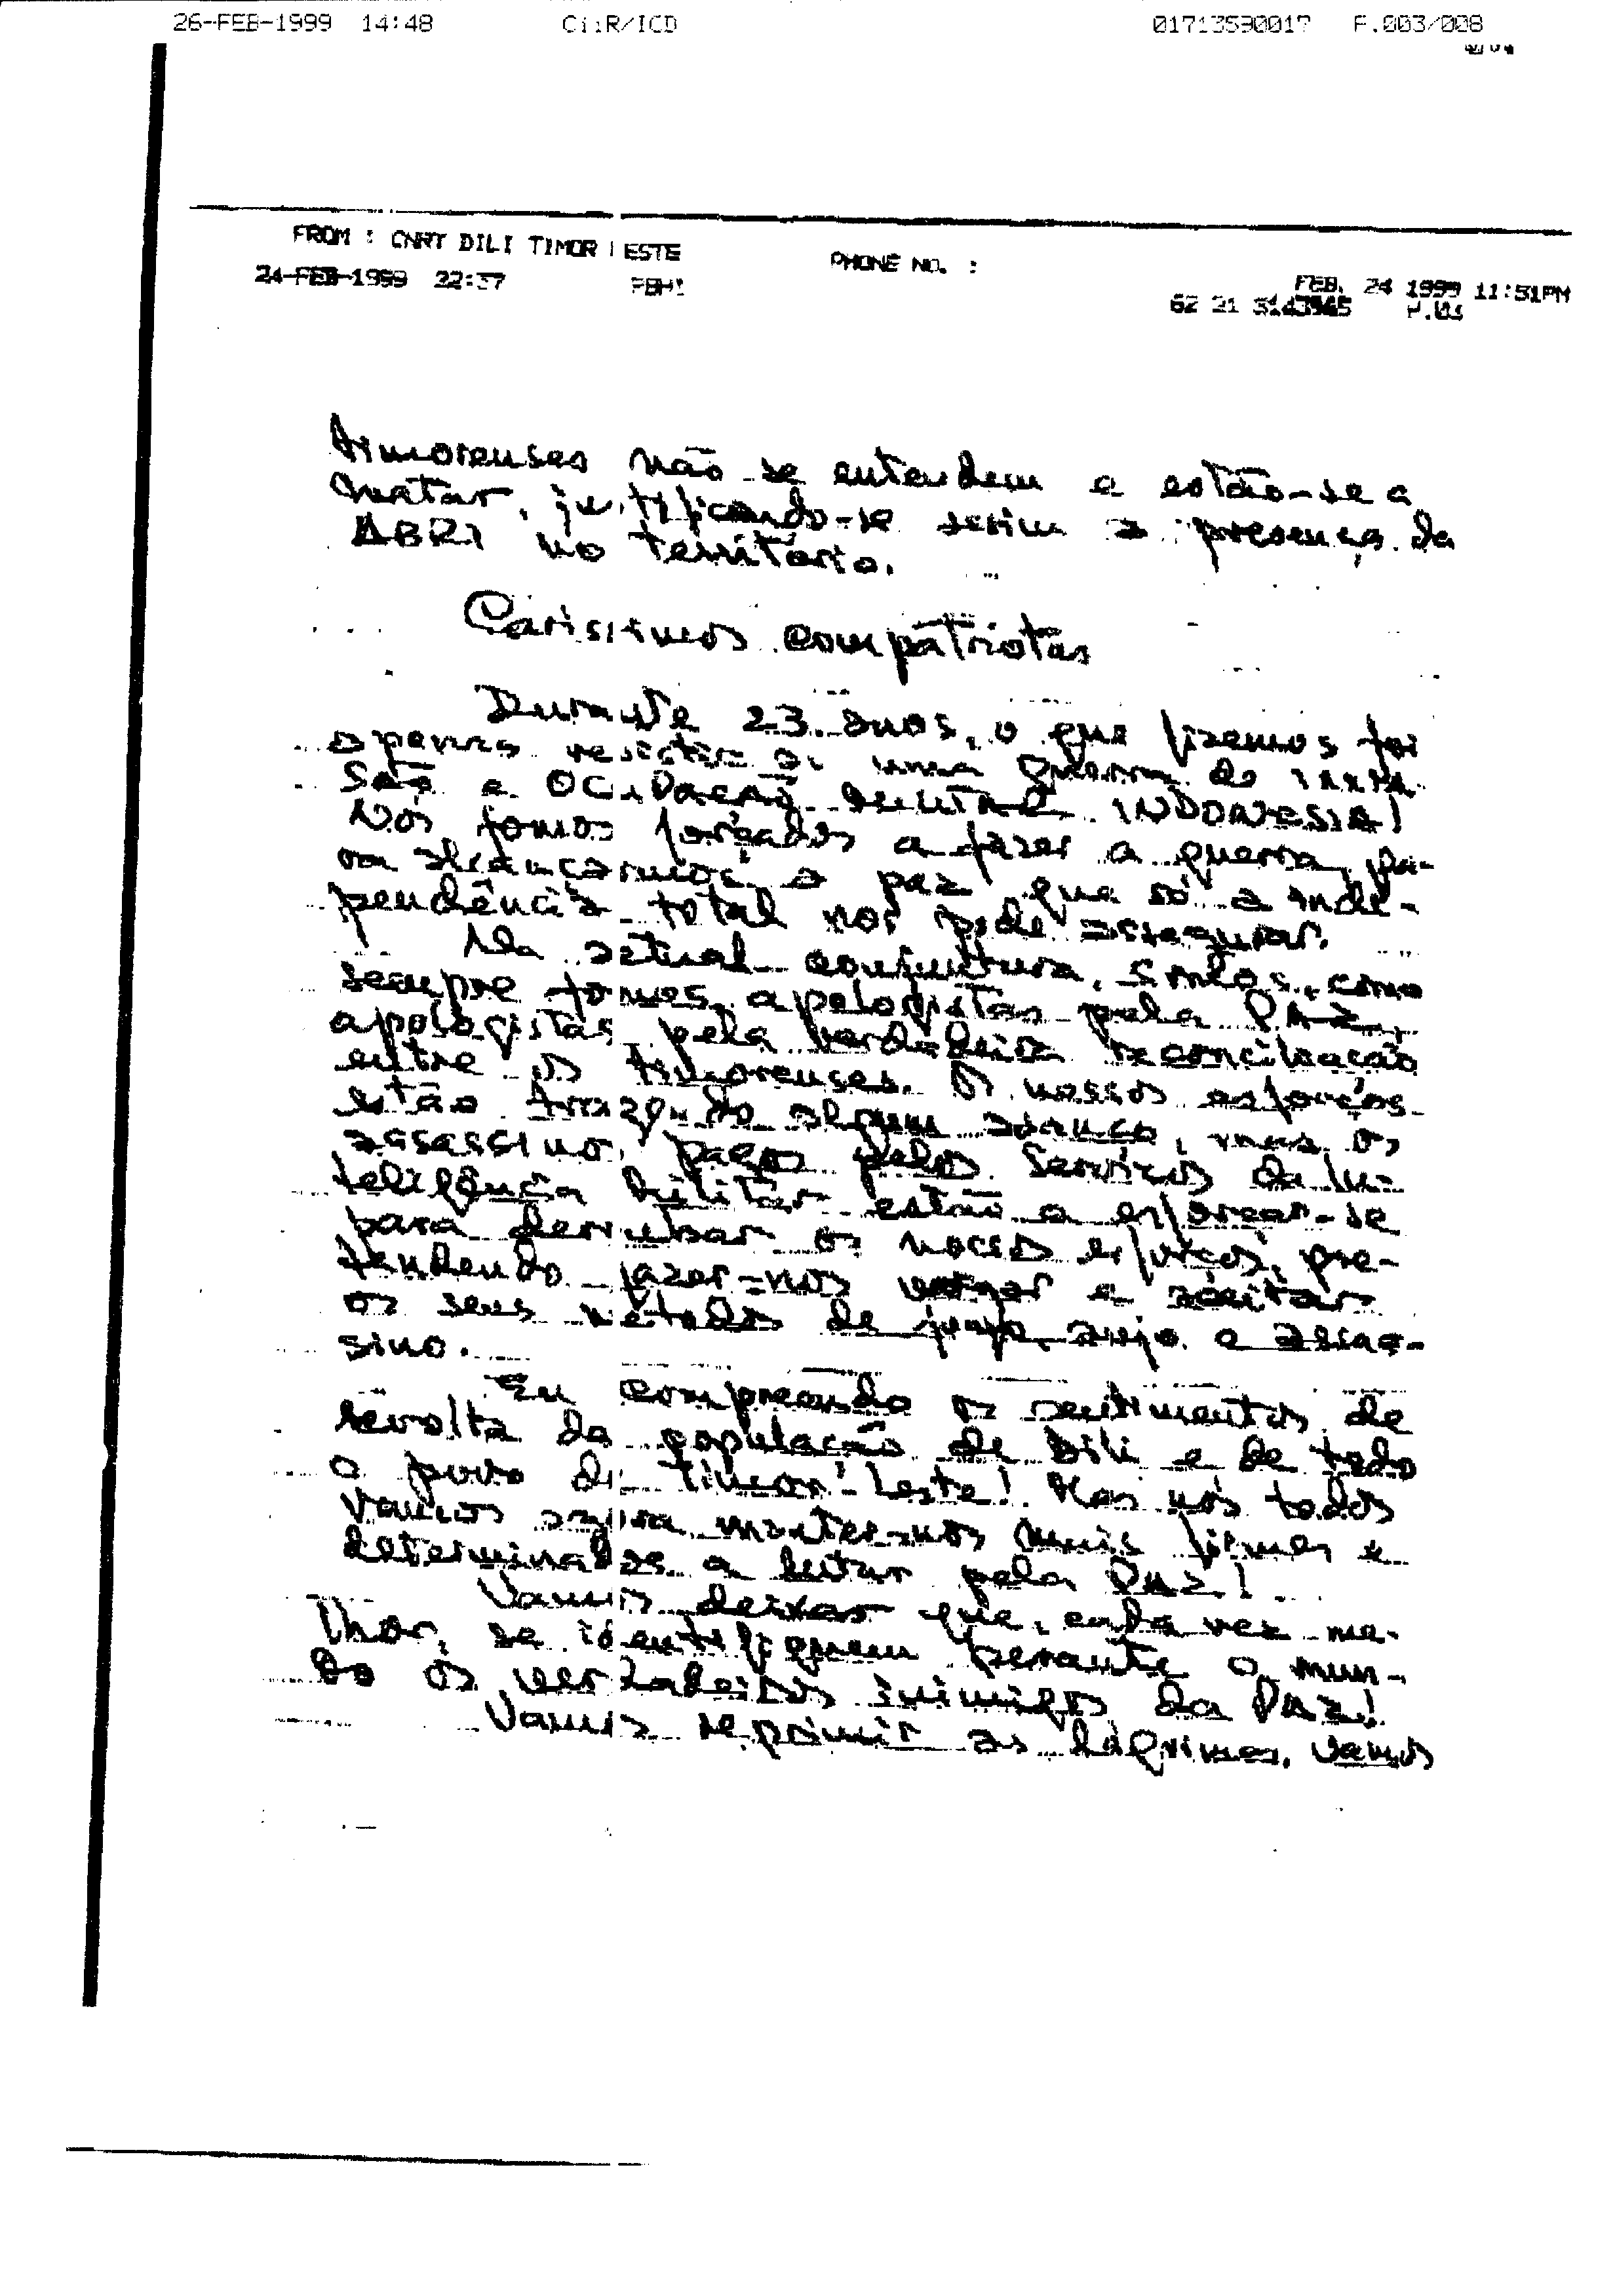 26-FEB-1999 14:48 CIIR/ICD 01713590017 P.003/008
FROM : CNRT DILI TIMOR LESTE PHONE NO. : FEB. 24 1999 11:51PM
24-FEB-1999 22:37 PBHI 62 21 3143945 P.03
timorenses não se entendem e estão-se a
matar, justificando-se assim a presença da
ABRI no território.
Caríssimos compatriotas
Durante 23 anos, o que fizemos foi
apenas resistir a uma guerra de inva-
são e OCUPAÇÃO MILITAR INDONESIA!
Nós fomos forçados a fazer a guerra, pa-
ra alcançarmos a paz que só a inde-
pendência total nos pode assegurar.
Na actual conjuntura, somos, como
sempre fomos, apologistas pela PAZ,
apologistas pela verdadeira reconciliação
entre os timorenses. Os nossos esforços
estão trazendo algum avanço, mas os
assassinos pagos pelos Serviços da In-
teligência Militar estão a esforçar-se
para derrubar os nossos esforços, pre-
tendendo fazer-nos e aceitar
os seus métodos de jogo sujo e assas-
sino.
Eu compreendo os sentimentos de
revolta da população de Dili e de todo
o povo de Timor-Leste! Mas nós todos
vamos agora manter-nos mais firmes e
determinados a lutar pela PAZ!
Vamos deixar que, cada vez me-
lhor, se identifiquem perante o mun-
do os verdadeiros inimigos da PAZ!
Vamos reprimir as lágrimas, vamos